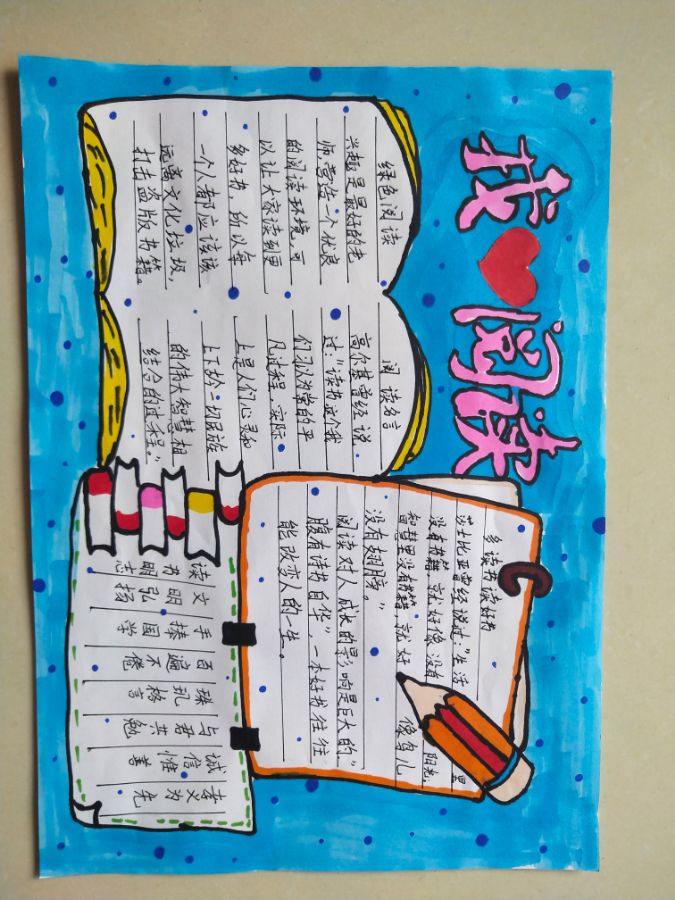 我阅读
绿色阅读
兴趣是最好的老
师,营造一个优良
的阅读环境,可
以让大家读到更
多好书,所以每
一个人都应该
远离文化垃圾,
打击盗版书籍。
阅读名言
高尔基曾经说
过:"读书,这个我
们习以为常的平
凡过程,实际
上是人们心灵和
上下於一切民族
的伟大智慧相
结合的过程。"
多读书 读好书
莎士比亚曾经说过:"生活里
没有书籍,就好像没有阳光;
智慧里没有书籍,就好像鸟儿
没有翅膀。"
阅读对人成长的影响是巨大的"
腹有诗书自华",一本好书往往
能改变人的一生。
读书明志
文明弘扬
手捧国学
百遍不倦
珠玑格言
与君共勉
诚信惟善
孝义为先